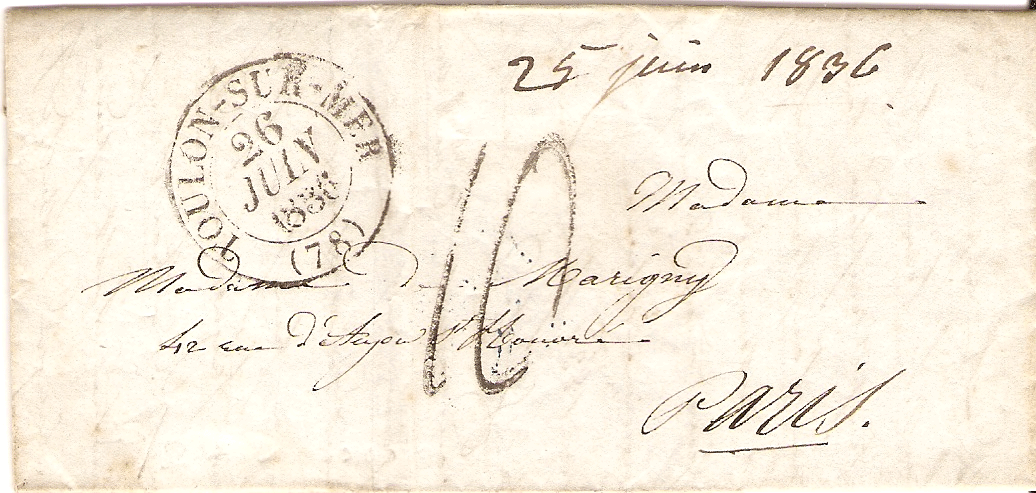 25 juin 1836
TOULON-SUR-MER
26
JUIN
1836
(78)
10
Madame
Madame de Marigny
42 rue d'Anjou St honoré
Paris.